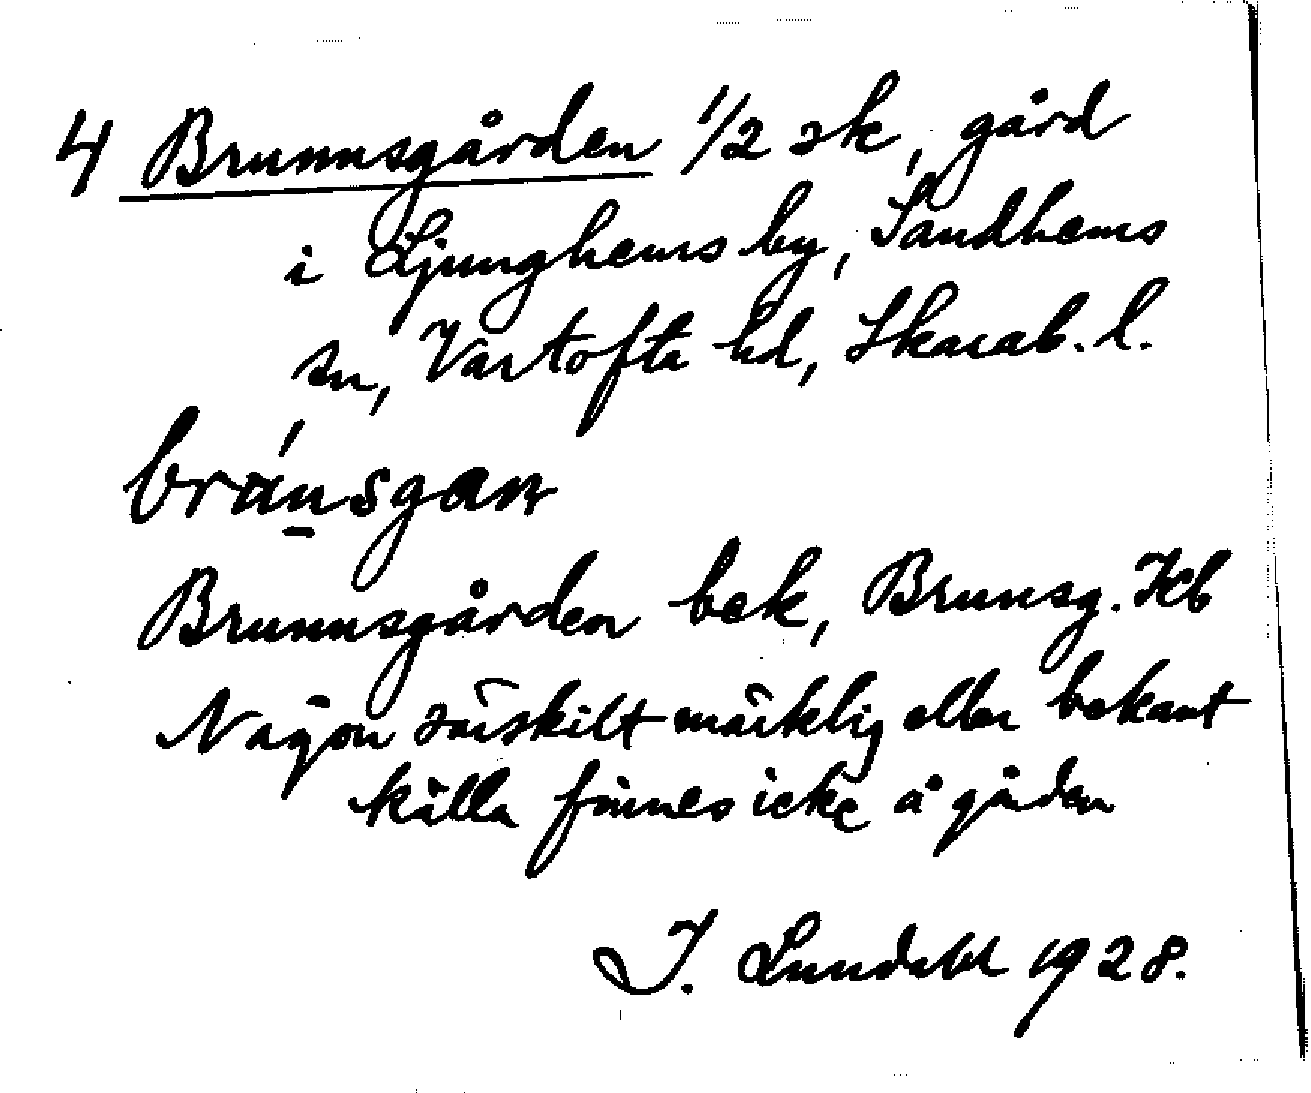 4 Brunnsgården 1/2 sk, gård
i Ljunghems by, Sandhems
sn, Vartofta hd, Skarab. l.
Brunnsgården bek, Brunsg. Kb
Någon särskilt märklig eller bekant
källa finnes icke å gården
I. Lundahl 1928.